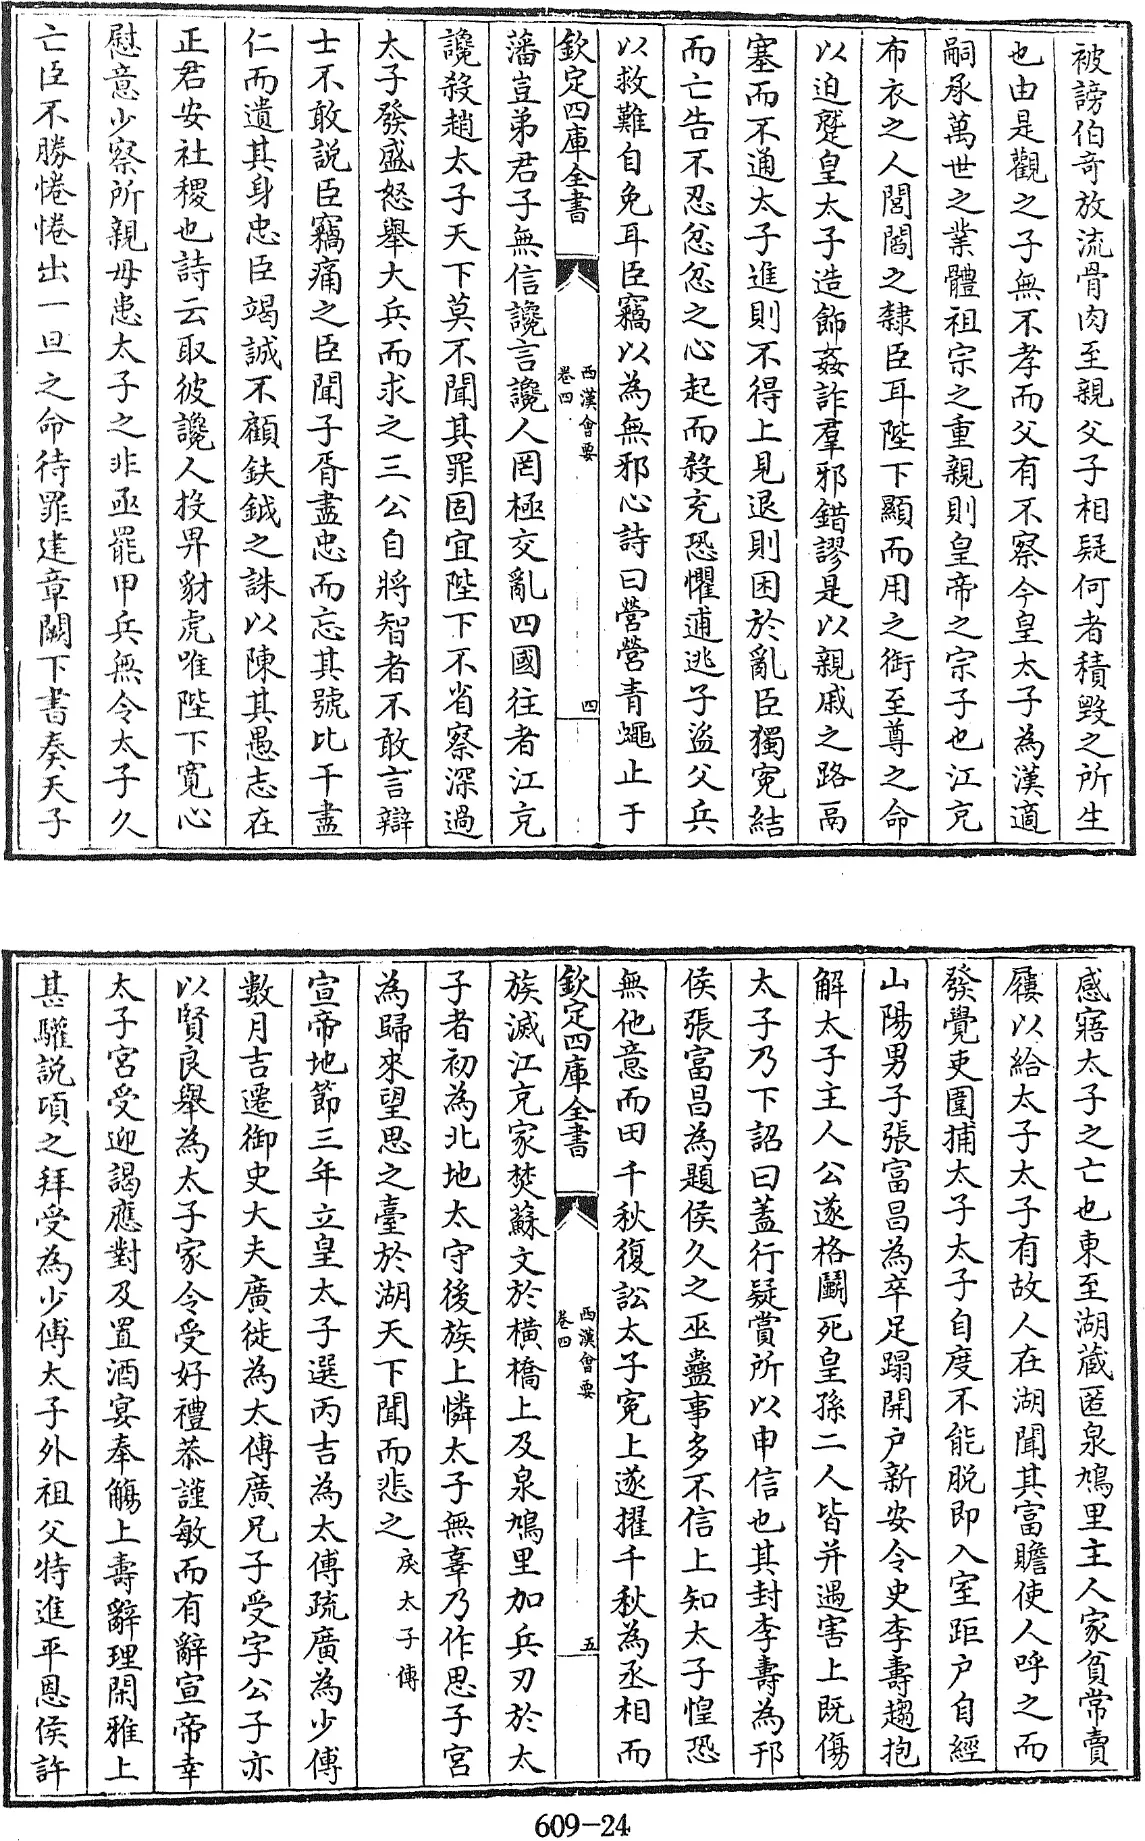 被謗伯奇放流骨肉至親父子相疑何者積毀之所生
也由是觀之子無不孝而父有不察今皇太子為漢適
嗣承萬世之業體祖宗之重親則皇帝之宗子也江充
布衣之人閭閻之隸臣耳陛下顯而用之銜至尊之命
以迫蹵皇太子造飾姦詐羣邪錯謬是以親戚之路鬲
塞而不通太子進則不得上見退則困於亂臣獨寃結
而亡告不忍忿忿之心起而殺充恐懼逋逃子盜父兵
以救難自免耳臣竊以為無邪心詩曰營營青蠅止于
欽定四庫全書
西漢會要
卷四
四
藩豈弟君子無信讒言讒人罔極交亂四國往者江充
讒殺趙太子天下莫不聞其罪固宜陛下不省察深過
太子發盛怒舉大兵而求之三公自將智者不敢言辯
士不敢説臣竊痛之臣聞子胥盡忠而忘其號比干盡
仁而遺其身忠臣竭誠不顧鈇鉞之誅以陳其愚志在
正君安社稷也詩云取彼讒人投畀豺虎唯陛下寛心
慰意少察所親毋患太子之非亟罷甲兵無令太子久
亡臣不勝惓惓出一旦之命待罪建章闕下書奏天子
感寤太子之亡也東至湖藏匿泉鳩里主人家貧常賣
屨以給太子太子有故人在湖聞其富贍使人呼之而
發覺吏圍捕太子太子自度不能脱即入室距户自經
山陽男子張富昌為卒足蹋開户新安令史李壽趨抱
解太子主人公遂格鬭死皇孫二人皆并遇害上既傷
太子乃下詔曰蓋行疑賞所以申信也其封李壽為邘
侯張富昌為題侯久之巫蠱事多不信上知太子惶恐
無他意而田千秋復訟太子寃上遂擢千秋為丞相而
欽定四庫全書
西漢會要
卷四
五
族滅江充家焚蘇文於橫橋上及泉鳩里加兵刃於太
子者初為北地太守後族上憐太子無辜乃作思子宮
為歸來望思之臺於湖天下聞而悲之戾太子傳
宣帝地節三年立皇太子選丙吉為太傅疏廣為少傅
數月吉遷御史大夫廣徙為太傅廣兄子受字公子亦
以賢良舉為太子家令受好禮恭謹敏而有辭宣帝幸
太子宮受迎謁應對及置酒宴奉觴上壽辭理閑雅上
甚驩説頃之拜受為少傅太子外祖父特進平恩侯許
609-24